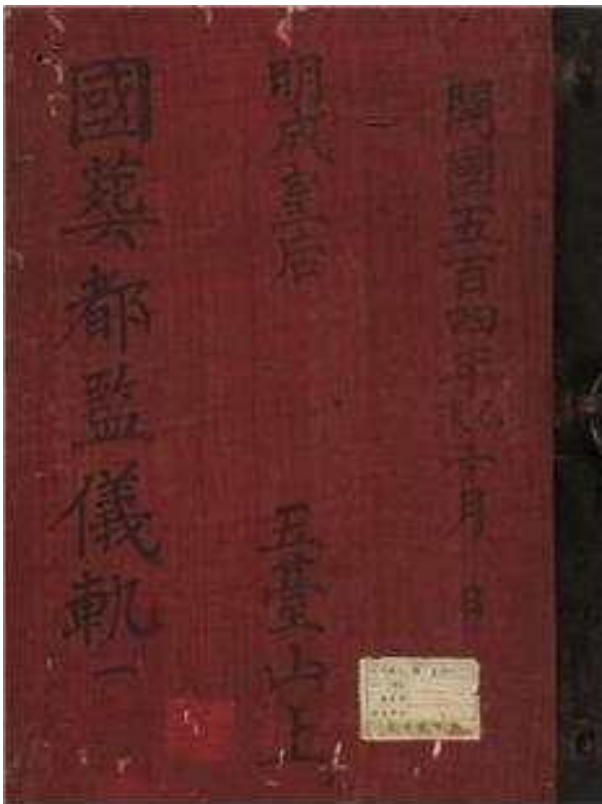 開國五百四年乙未十月 日
明成皇后 五臺山上
國葬都監儀軌 一